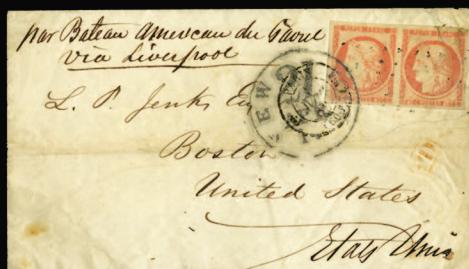 par Bateau Americain du Havre
via Liverpool
L. P. Jenks Esq
Boston
United States
Etats Unis
PD